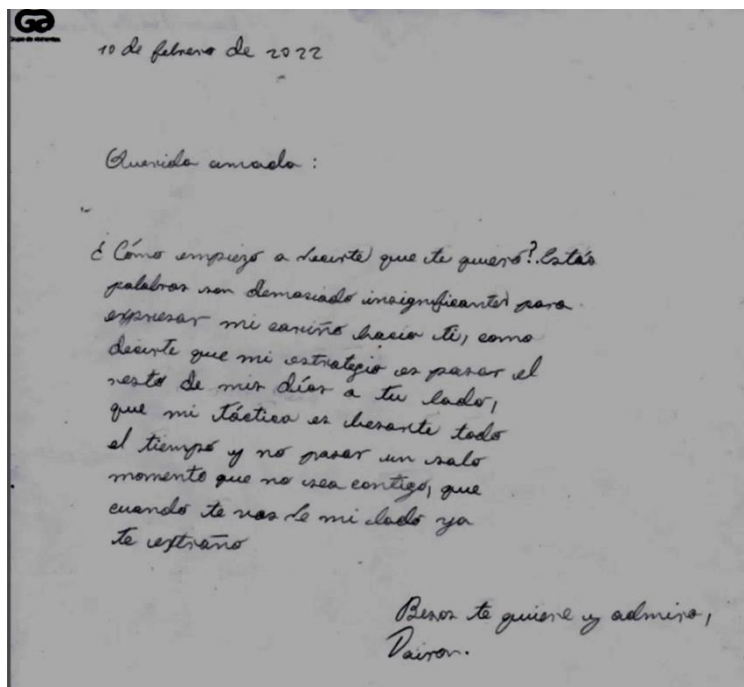 Ga
10 de febrero de 2022
Querida amada:
¿Cómo empiezo a decirte que te quiero? Estás
palabras son demasiado insignificantes para
expresar mi cariño hacia ti, como
decirte que mi estrategia es pasar el
resto de mis días a tu lado,
que mi táctica es besarte todo
el tiempo y no pasar un solo
momento que no sea contigo, que
cuando te vas de mi lado ya
te extraño
Besos te quiere y admira,
Dairon.